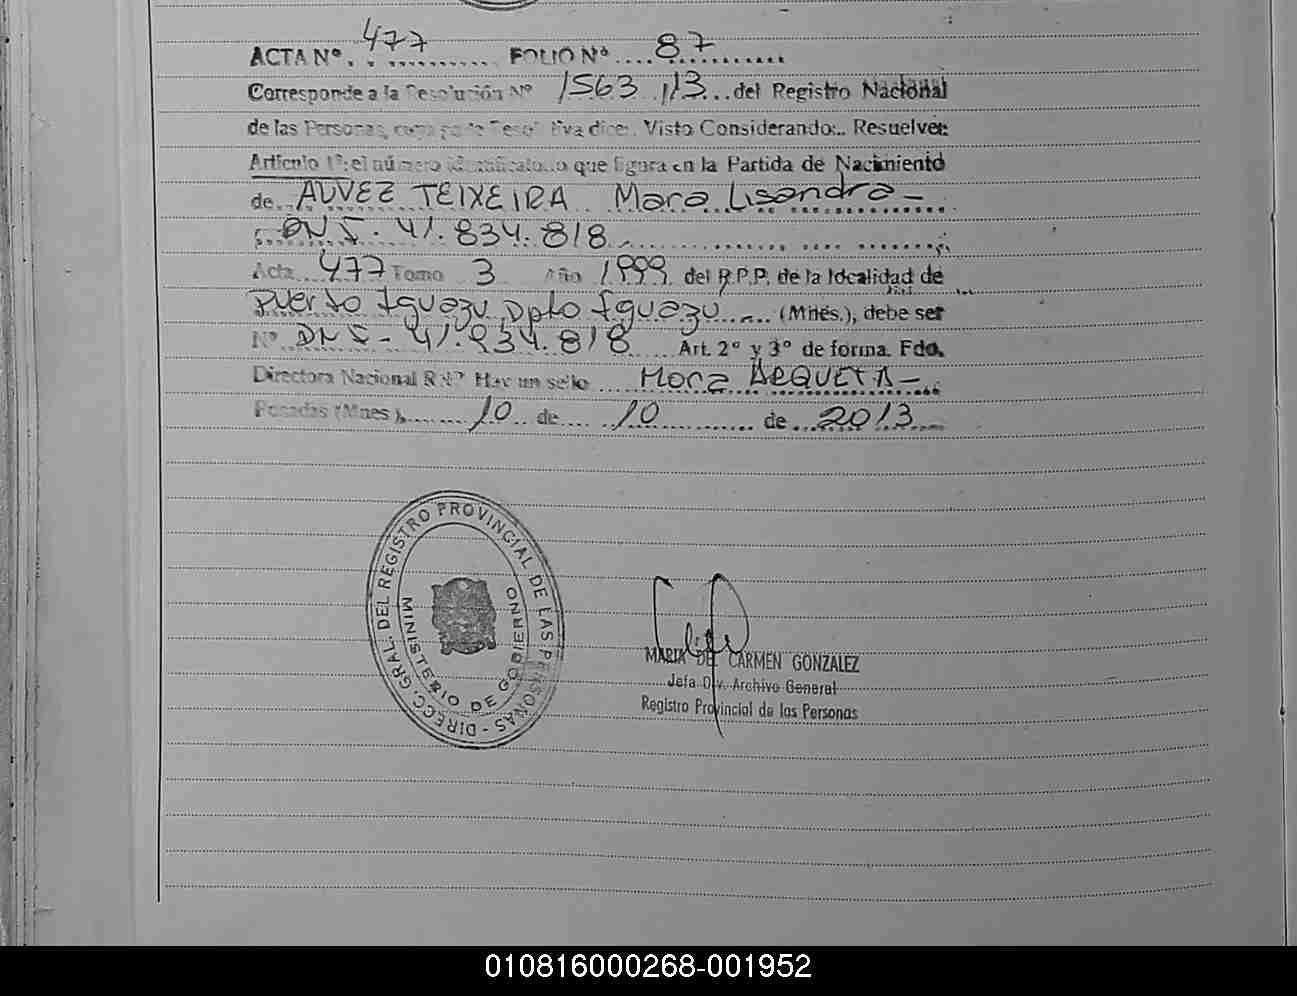 ACTA Nº. 477 FOLIO Nº 87
Corresponde a la Resolución Nº 1563 /13 del Registro Nacional
de las Personas, cuya parte Resol Visto Considerando:.. Resuelve:
Artículo 1º: el número identificatorio que figura en la Partida de Nacimiento
de ALVEZ TEIXEIRA Mara Lisandra -
DNI. 41.834.818
Acta 477 Tomo 3 Año 1999 del R.P.P. de la localidad de
Puerto Iguazu Dpto Iguazu (Mnes.), debe ser
Nº DNI - 41.834.818 Art. 2º y 3º de forma. Fdo.
Directora Nacional RNP Hay un sello Mora ARQUETA -
Posadas (Mnes.), 10 de 10 de 2013
DIRECC. GRAL. DEL REGISTRO PROVINCIAL DE LAS PERSONAS -
MINISTERIO DE GOBIERNO
MARIA DEL CARMEN GONZALEZ
Jefa Div. Archivo General
Registro Provincial de las Personas
010816000268-001952